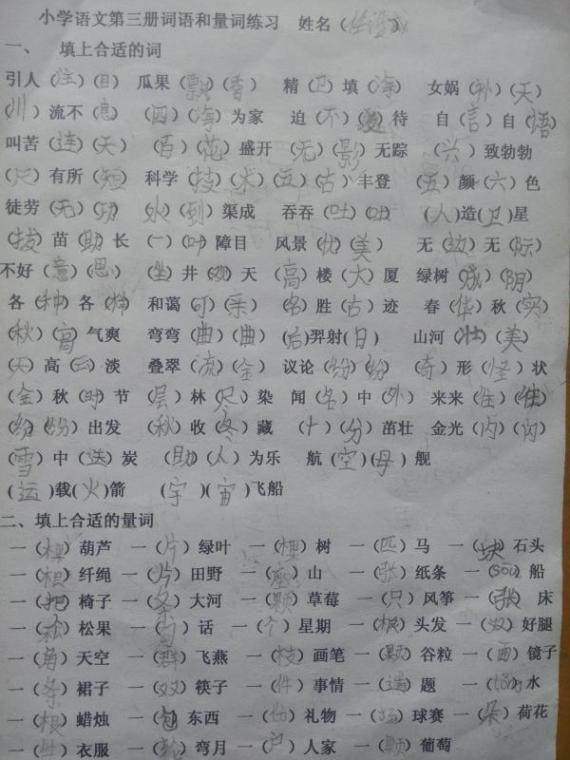 小学语文第三册词语和量词练习 姓名（ ）
一、 填上合适的词
引人（注）（目） 瓜果（飘）（香） 精（卫）填（海） 女娲（补）（天）
（川）流不（息） （四）（海）为家 迫（不）（ ）待 自（言）自（语）
叫苦（连）（天） （百）（花）盛开 （无）（影）无踪 （六）致勃勃
（尺）有所（短） 科学（技）（术）（五）（古）丰登 （五）颜（六）色
徒劳（无）（功） 水（到）渠成 吞吞（吐）（吐） （人）造（卫）星
（拔）苗（助）长 （一）（叶）障目 风景（优）（美） 无（边）无（际）
不好（意）（思） （坐）井（观）天 （高）楼（大）厦 绿树（成）（阴）
各（种）各（样） 和蔼（可）（亲） （名）胜（古）迹 春（华）秋（实）
（秋）（高）气爽 弯弯（曲）（曲） （后）羿射（日） 山河（壮）（美）
（天）高（云）淡 叠翠（流）（金） 议论（纷）（纷） （奇）形（怪）状
（金）秋（时）节 （层）林（尽）染 闻（名）中（外） 来来（往）（往）
（纷）（纷）出发 （秋）收（冬）藏 （十）（分）茁壮 金光（闪）（闪）
（雪）中（送）炭 （助）（人）为乐 航（空）（母）舰
（运）载（火）箭 （宇）（宙）飞船
二、填上合适的量词
一（ ）葫芦 一（片）绿叶 一（棵）树 一（匹）马 一（块）石头
一（根）纤绳 一（片）田野 一（座）山 一（张）纸条 一（ ）船
一（把）椅子 一（条）大河 一（颗）草莓 一（只）风筝 一（张）床
一（ ）松果 一（句）话 一（个）星期 一（根）头发 一（双）好腿
一（角）天空 一（群）飞燕 一（枝）画笔 一（颗）谷粒 一（面）镜子
一（条）裙子 一（双）筷子 一（件）事情 一（道）题 一（ ）水
一（根）蜡烛 一（包）东西 一（份）礼物 一（场）球赛 一（朵）荷花
一（ ）衣服 一（轮）弯月 一（户）人家 一（颗）葡萄